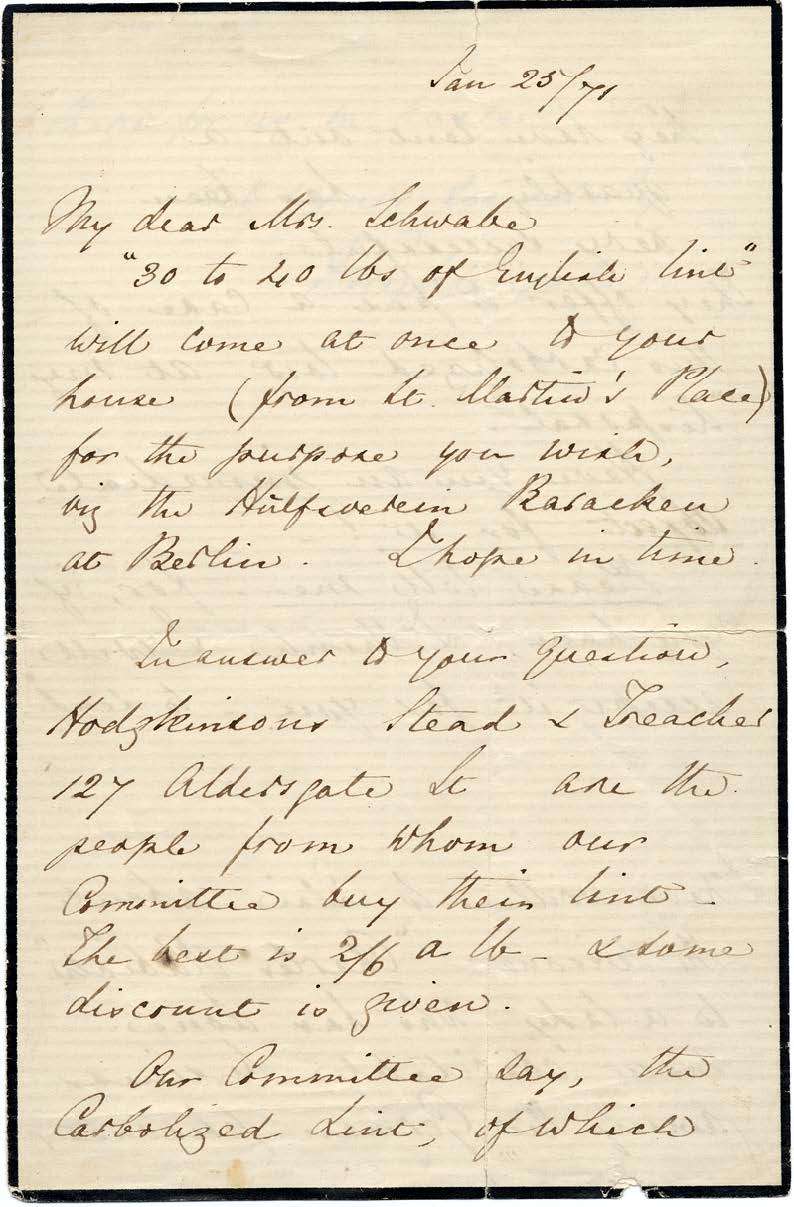 Jan 25/71
My dear Mrs. Schwabe
"30 to 40 lbs of English lint"
will come at once to your
house (from St. Martin's Place)
for the purpose you wish,
viz the Hülfsverein Baracken
at Berlin. I hope in time.
In answer to your question,
Hodgkinsons Stead & Treacher
127 Aldersgate St are the
people from whom our
Committee buy their lint.
The best is 2/6 a lb - & some
discount is given.
Our Committee say, the
Carbolized Lint, of which